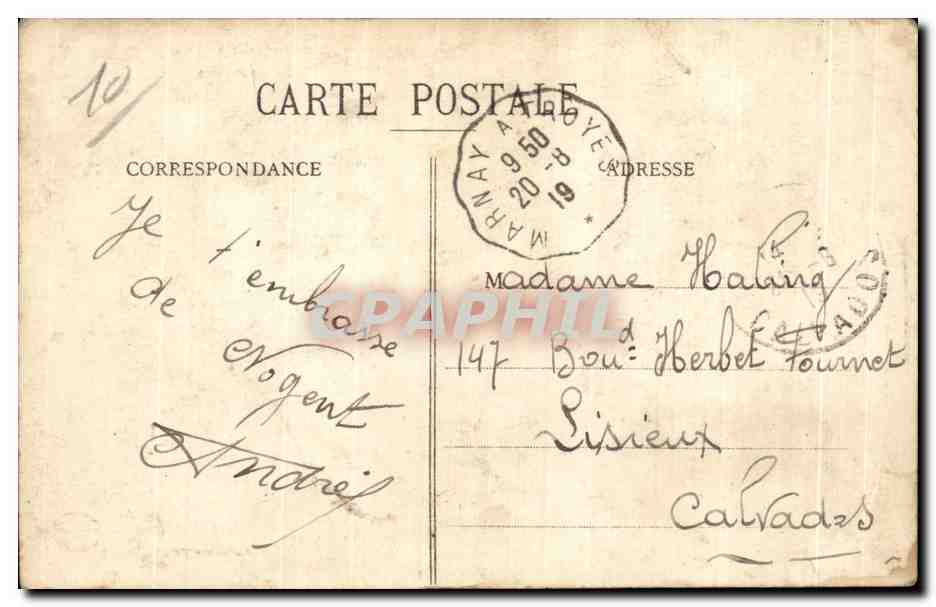 10
CARTE POSTALE
CORRESPONDANCE
ADRESSE
MARNAY A TROYES
9 50
20 -8
19
*
Je t'embrasse
de Nogent
André
Madame
147 Bou.d Herbet Fournet
Lisieux
Calvados
CALVADOS
CPAPHIL